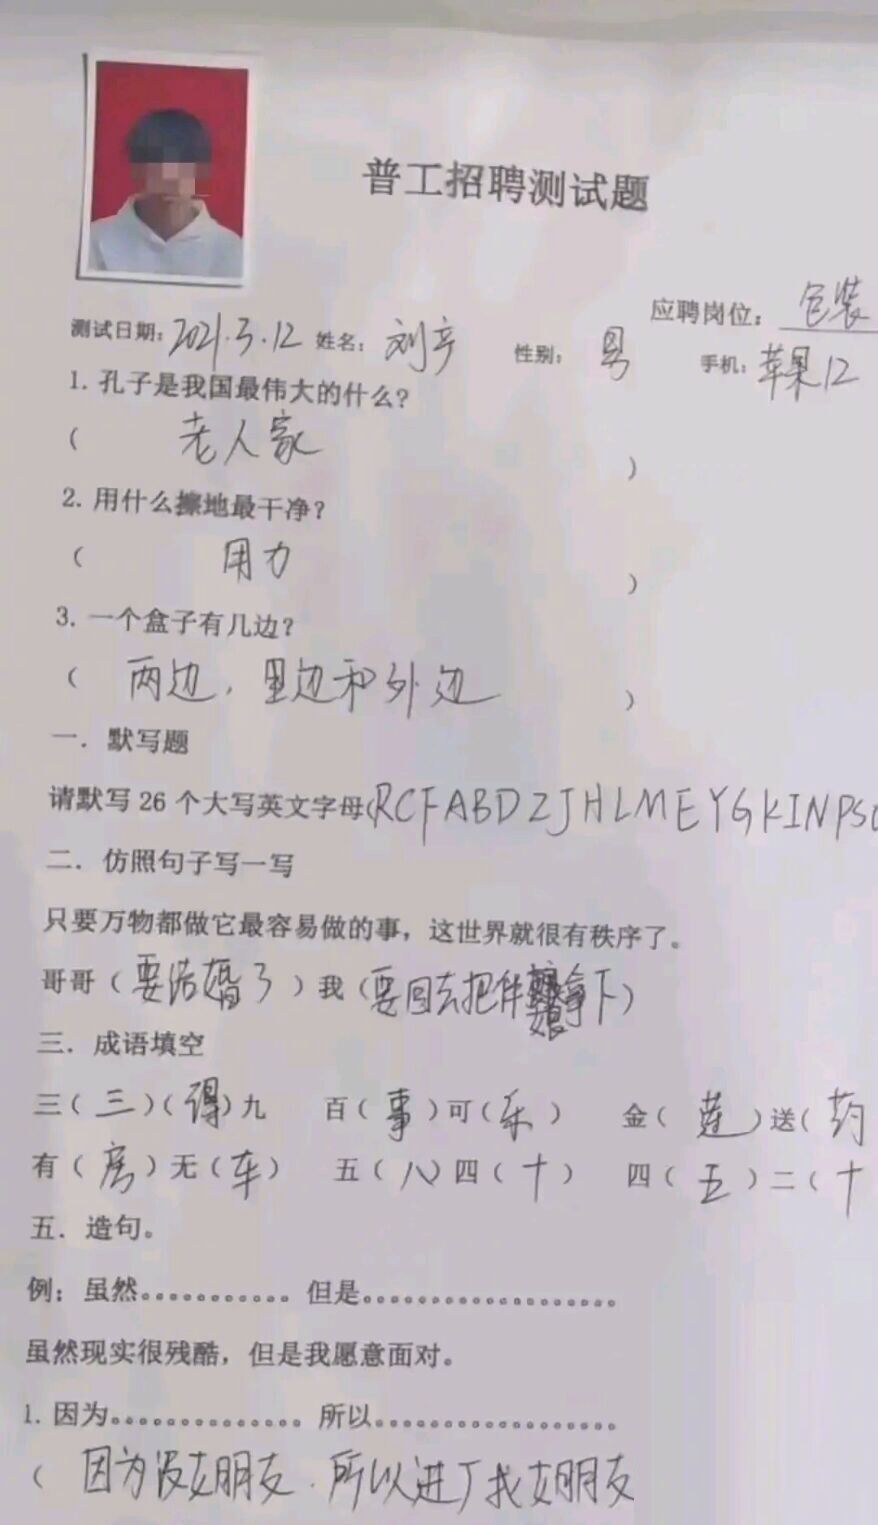 普工招聘测试题
应聘岗位：包装
测试日期：2021.3.12 姓名：刘宇 性别：男 手机：苹果12
1. 孔子是我国最伟大的什么？
（ 老人家 ）
2. 用什么擦地最干净？
（ 用力 ）
3. 一个盒子有几边？
（ 两边，里边和外边 ）
一．默写题
请默写26个大写英文字母（RCFABDZJHLMEYGKINPS
二．仿照句子写一写
只要万物都做它最容易做的事，这世界就很有秩序了。
哥哥（要结婚了）我（要回去把伴娘拿下）
三．成语填空
三（三）（得）九 百（事）可（乐） 金（莲）送（药
有（房）无（车） 五（八）四（十） 四（五）二（十
五．造句。
例：虽然。。。。。。。。。。。但是。。。。。。。。。。。。。。。。。。。
虽然现实很残酷，但是我愿意面对。
1. 因为。。。。。。。。。。。。。。所以。。。。。。。。。。。。。。。。。。
（ 因为没女朋友．所以进厂找女朋友